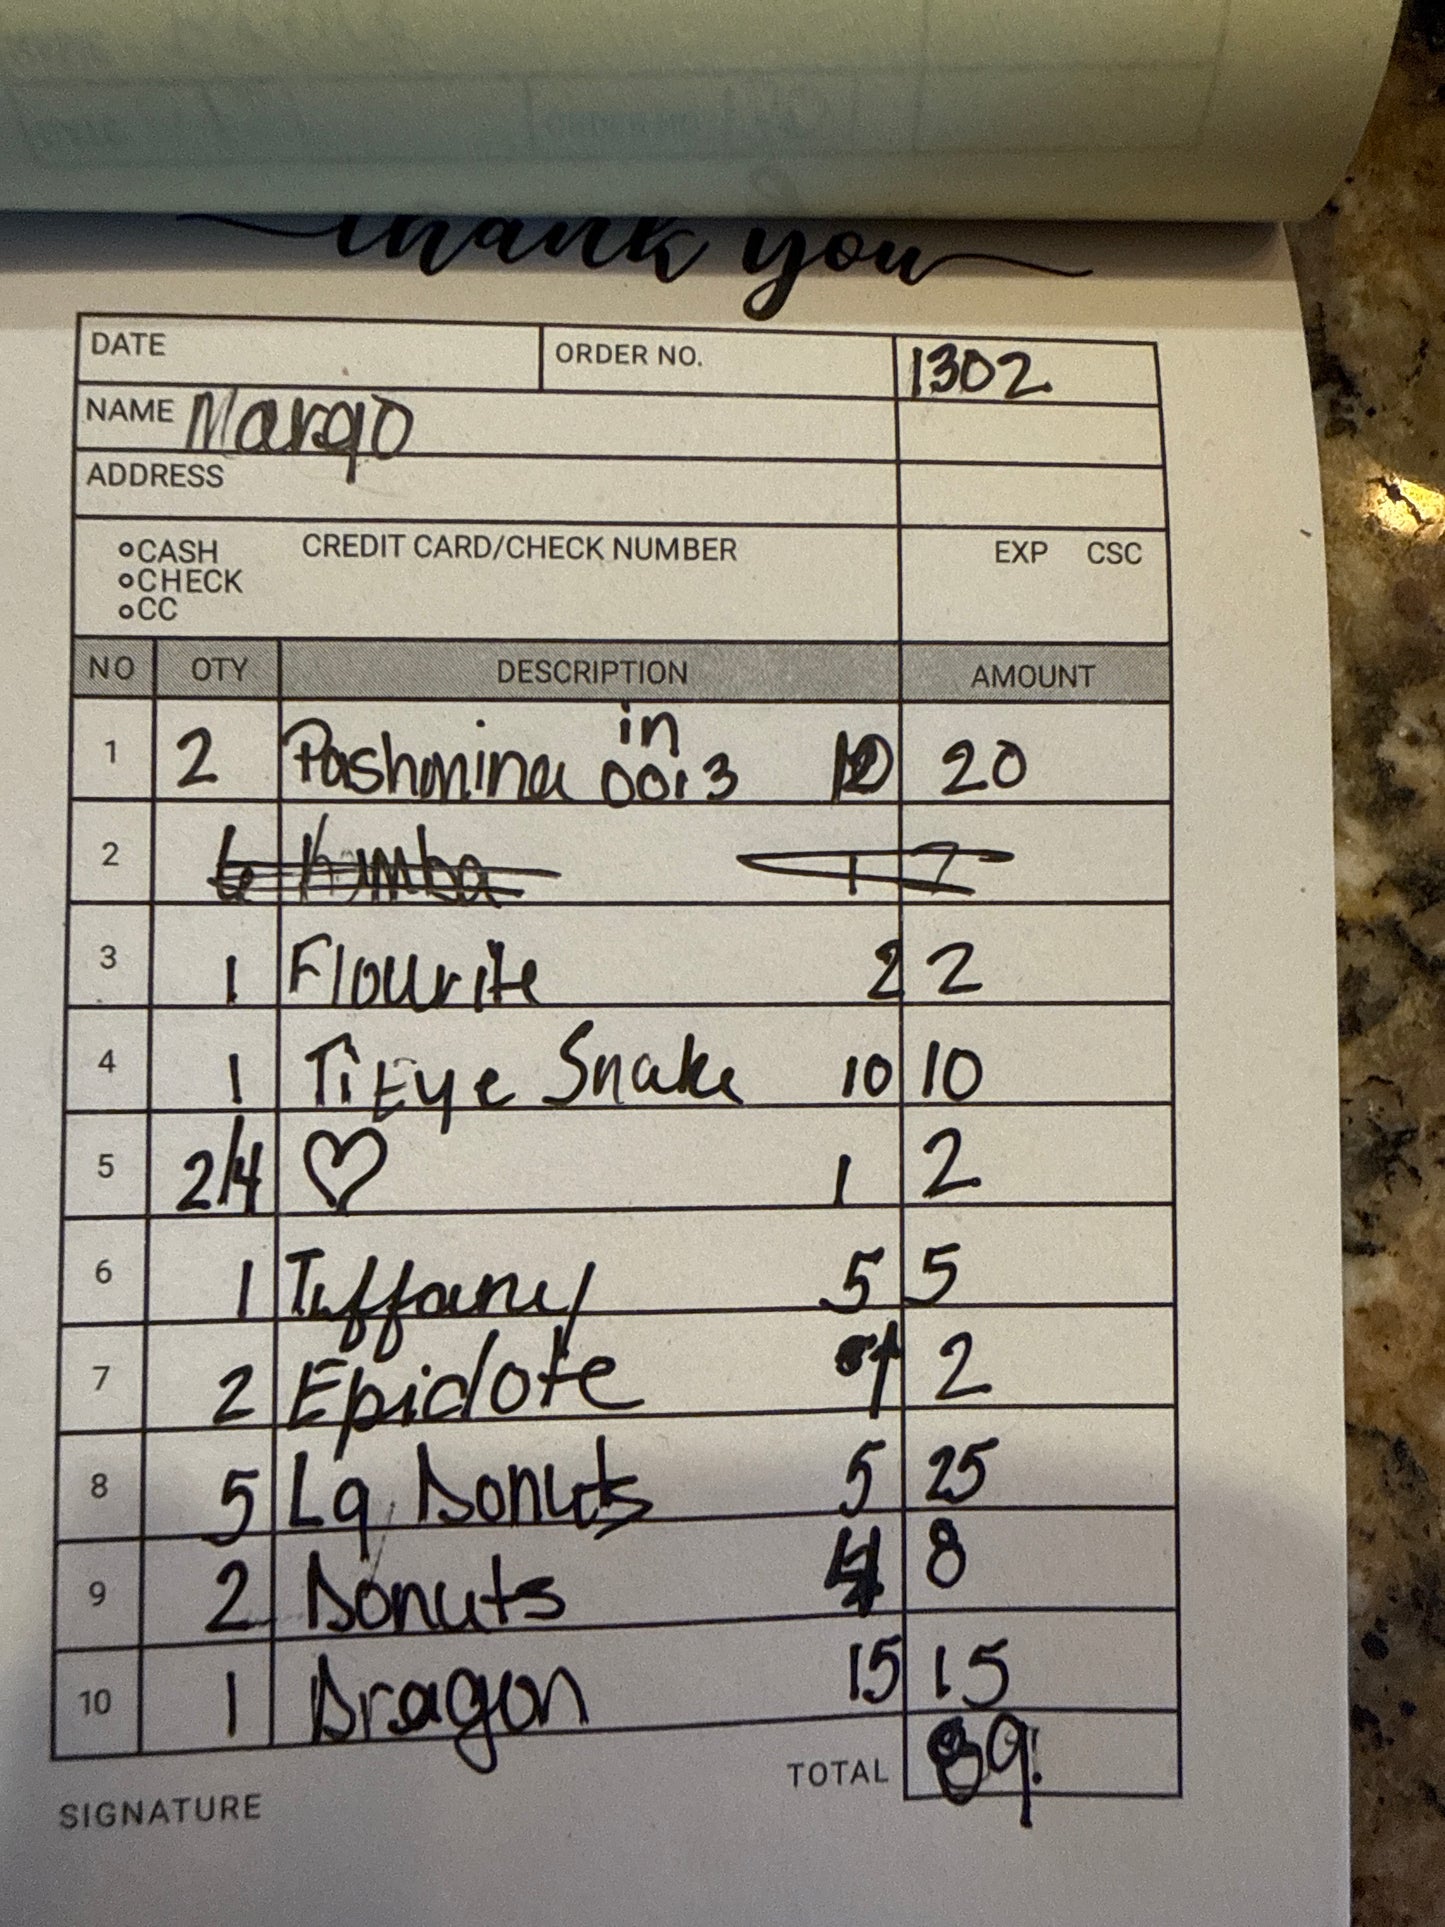 thank you
DATE ORDER NO. 1302
NAME Margo
ADDRESS
CASH CREDIT CARD/CHECK NUMBER EXP CSC
CHECK
CC
NO QTY DESCRIPTION AMOUNT
in
1 2 Pashmina 0013 10 20
2
3 1 Flourite 2 2
4 1 Ti Eye Snake 10 10
5 2/4 ♡ 1 2
6 1 Tiffany 5 5
7 2 Epidote 1 2
8 5 Lg Donuts 5 25
9 2 Donuts 4 8
10 1 Dragon 15 15
TOTAL 89!
SIGNATURE